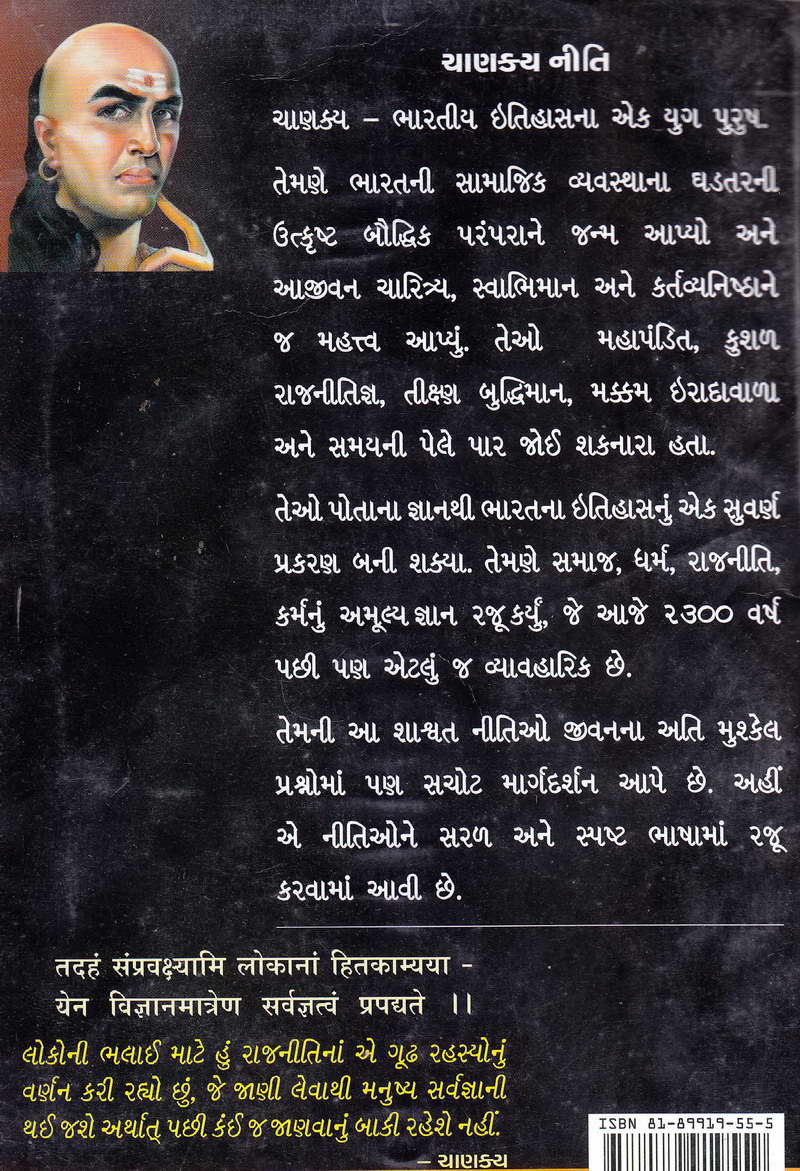 ચાણક્ય નીતિ
ચાણક્ય – ભારતીય ઇતિહાસના એક યુગ પુરુષ.
તેમણે ભારતની સામાજિક વ્યવસ્થાના ઘડતરની
ઉત્કૃષ્ટ બૌદ્ધિક પરંપરાને જન્મ આપ્યો અને
આજીવન ચારિત્ર્ય, સ્વાભિમાન અને કર્તવ્યનિષ્ઠાને
જ મહત્ત્વ આપ્યું. તેઓ મહાપંડિત, કુશળ
રાજનીતિજ્ઞ, તીક્ષ્ણ બુદ્ધિમાન, મક્કમ ઇરાદાવાળા
અને સમયની પેલે પાર જોઈ શકનારા હતા.
તેઓ પોતાના જ્ઞાનથી ભારતના ઇતિહાસનું એક સુવર્ણ
પ્રકરણ બની શક્યા. તેમણે સમાજ, ધર્મ, રાજનીતિ,
કર્મનું અમૂલ્ય જ્ઞાન રજૂ કર્યું, જે આજે ૨૩૦૦ વર્ષ
પછી પણ એટલું જ વ્યાવહારિક છે.
તેમની આ શાશ્વત નીતિઓ જીવનના અતિ મુશ્કેલ
પ્રશ્નોમાં પણ સચોટ માર્ગદર્શન આપે છે. અહીં
એ નીતિઓને સરળ અને સ્પષ્ટ ભાષામાં રજૂ
કરવામાં આવી છે.
तदहं संप्रवक्ष्यामि लोकानां हितकाम्यया -
येन विज्ञानमात्रेण सर्वज्ञत्वं प्रपद्यते ।।
લોકોની ભલાઈ માટે હું રાજનીતિનાં એ ગૂઢ રહસ્યોનું
વર્ણન કરી રહ્યો છું, જે જાણી લેવાથી મનુષ્ય સર્વજ્ઞાની
થઈ જશે અર્થાત્ પછી કંઈ જ જાણવાનું બાકી રહેશે નહીં.
– ચાણક્ય
ISBN 81-89919-55-5